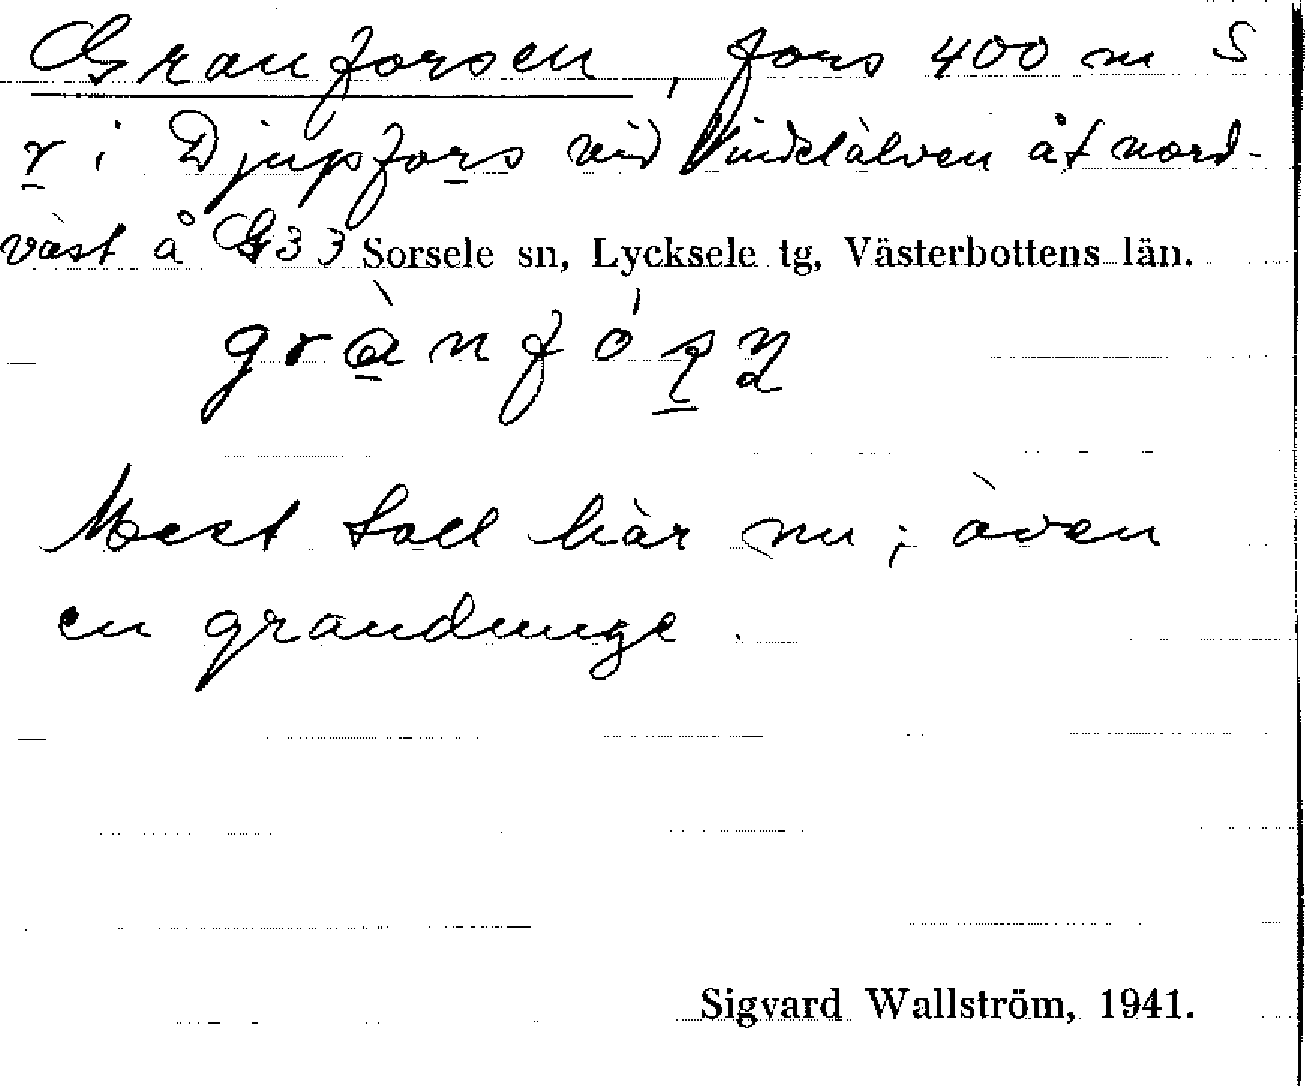 Granforsen, fors 400 m S
r i Djupfors vid Vindelälven åt nord-
väst å G33 Sorsele sn, Lycksele tg, Västerbottens län.
grànfórn
Mest tall här nu; även
en grandunge.
Sigvard Wallström, 1941.